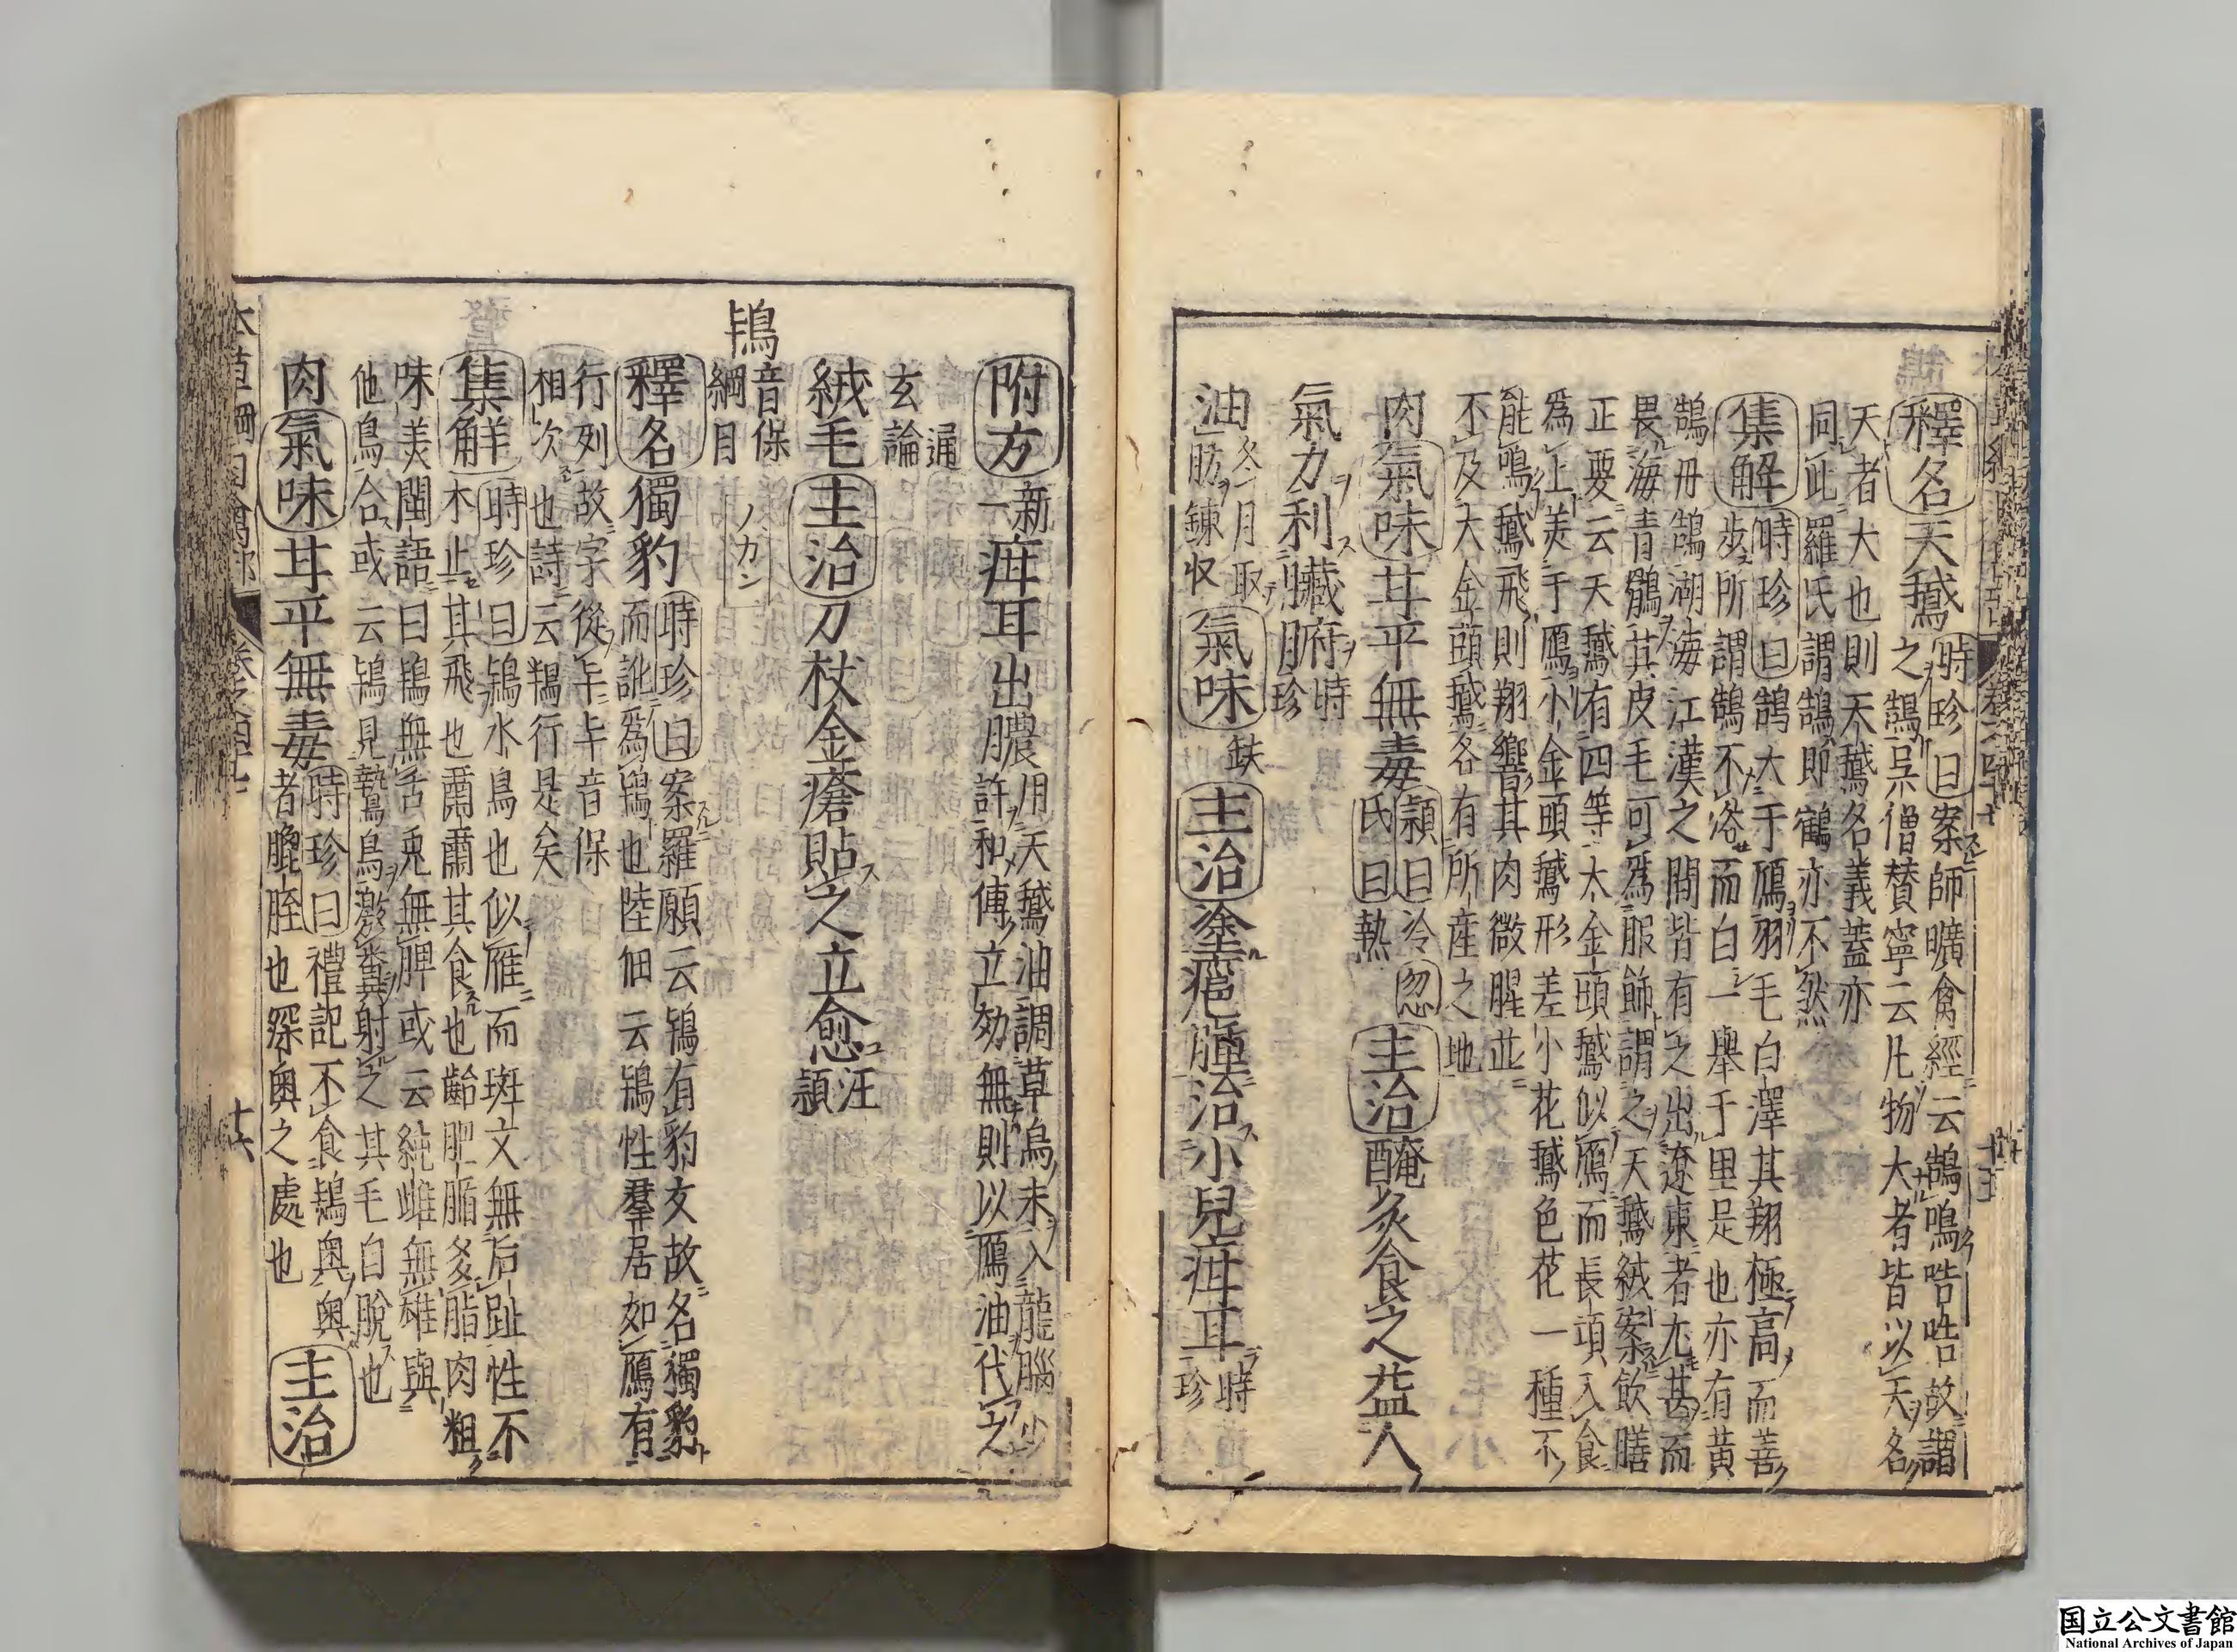 釋名天鵝時珍曰案師曠禽經云鵠鳴哠哠故謂
之鵠吴僧賛寧云凡物大者皆以天名
天者大也則天鵝名義蓋亦
同此羅氏謂鵠即鶴亦不然
集解時珍曰鵠大于鴈羽毛白澤其翔極高而善
歩所謂鵠不浴而白一舉千里是也亦有黄
鵠丹鵠湖海江漢之間皆有之出遼東者尤甚而
畏海青鶻其皮毛可爲服飾謂之天鵝絨案飲膳
正要云天鵝有四等大金頭鵝似鴈而長項入食
爲上美于鴈小金頭鵝形差小花鵝色花一種不
能鳴鵝飛則翔響其肉微腥並
不及大金頭鵝各有所産之地
肉氣味甘平無毒頴曰冷忽
氏曰熱主治醃炙食之益人
氣力利臟腑時
珍
油冬月取
肪錬収氣味缺主治塗癰腫治小兒疳耳時
珍
附方新
一疳耳出膿用天鵝油調草烏末入龍腦少
許和傅立効無則以鴈油代之
通
玄論
絨毛主治刀杖金瘡貼之立愈汪
頴
鴇音保
綱目
ノカン
釋名獨豹時珍曰案羅願云鴇有豹文故名獨豹
而訛爲鴇也陸佃云鴇性羣居如鴈有
行列故字從𠦒𠦒音保
相次也詩云鴇行是矣
集觧時珍曰鴇水鳥也似雁而斑文無后趾性不
木止其飛也肅肅其食也齝肥腯多脂肉粗
味美閩語曰鴇無舌兎無脾或云純雌無雄與
他鳥合或云鴇見鷙鳥激糞射之其毛自脫也
肉氣味甘平無毒時珍曰禮記不食鴇奥奥
者脾胵也深奥之處也主治
本草綱目禽部
卷之四十七
十六
十五
国立公文書館
National Archives of Japan